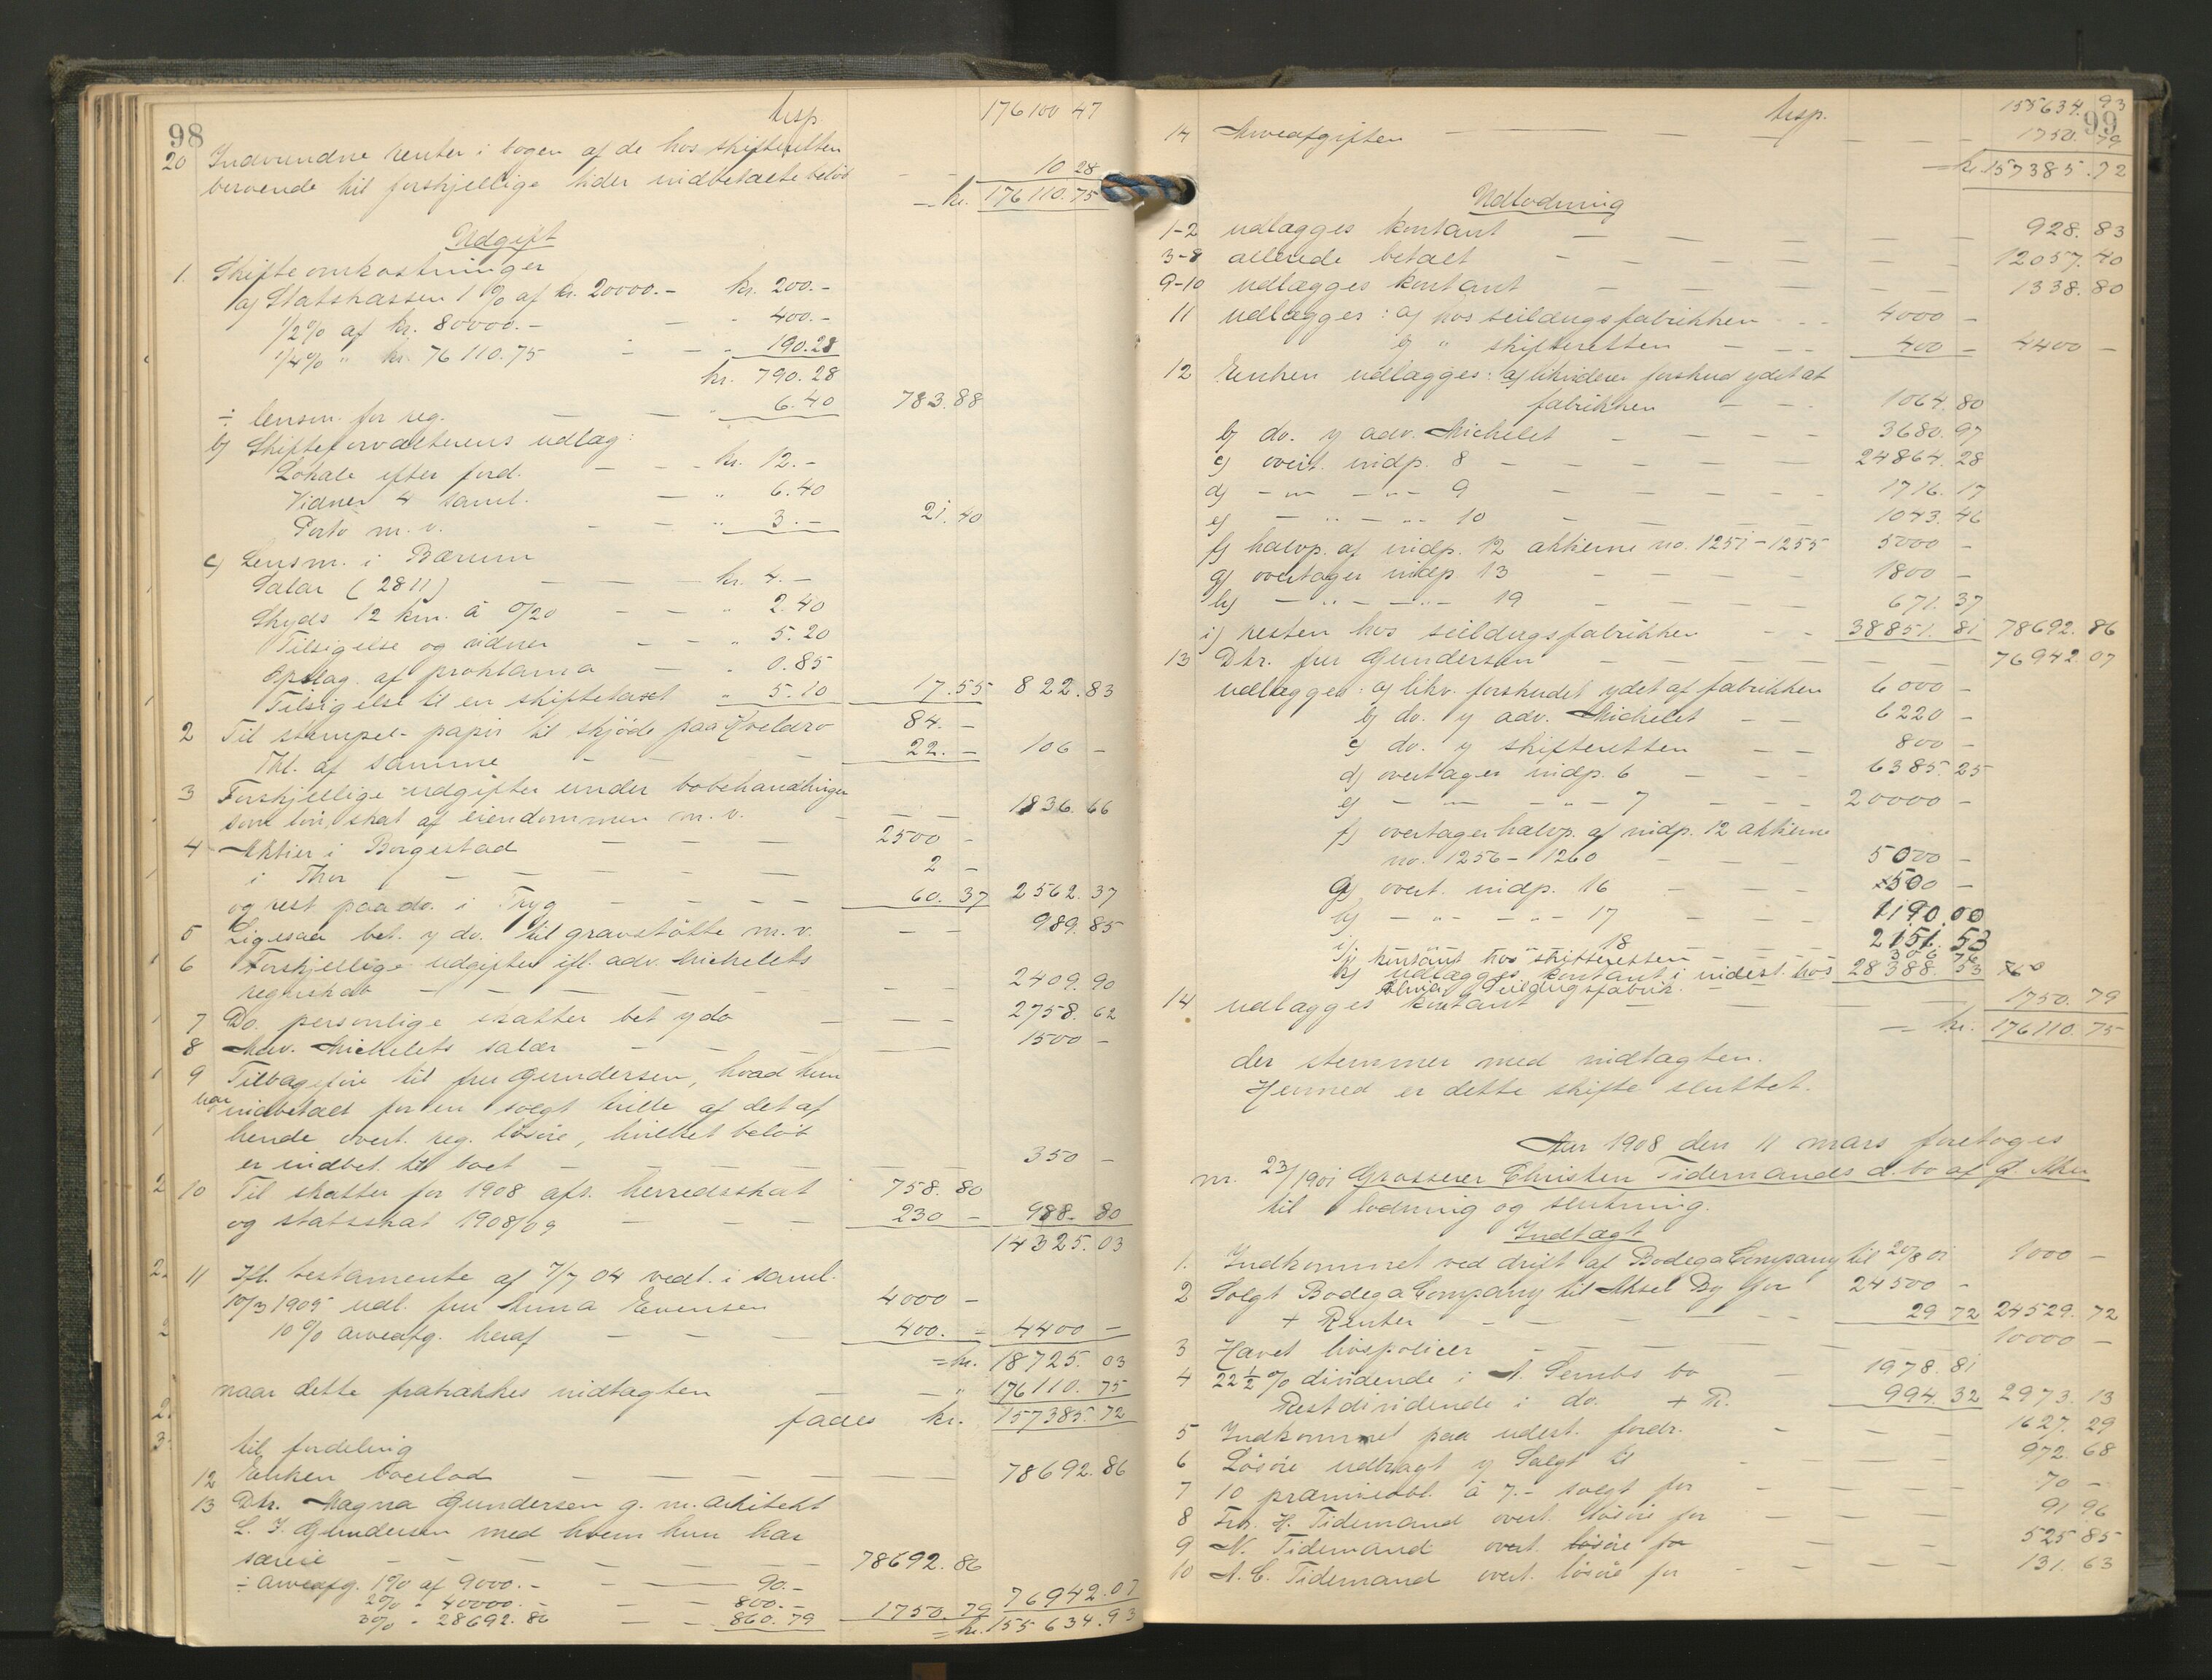 98
trsp. 176100 47
20 Indvundne renter i bogen af de hos skifteretten
beroende til forskjellige tider indbetalte beløb — — 10.28
= kr. 176110.75
Udgift
1. Skifteomkostninger
a) Statskassen 1 % af kr. 20000.- kr. 200.-
1/2 % af kr. 80000.- — - 400.-
1/4 % " kr. 76110.75 - — - 190.28
kr. 790.28
÷ lensm. for reg. — — " 6.40 783.88
b) Skifteforvalterens udlæg:
Lokale efter ford. — — - kr. 12.-
Vidner 4 saml. — " 6.40
Porto m.v. - — " 3.- 21.40
c) Lensm. i Bærum
Salær (2811) — — — kr. 4.-
Skyds 12 km. à 0/20 — — " 2.40
Tilsigelse og vidner — - " 5.20
Opslag af proklama — - 0.85
Tilsigelse til en skiftetaxt " 5.10 17.55 822.83
2 Til stempel-papir til skjøde paa Kveldro 84.-
Thl. af samme — — — 22.- 106 -
3 Forskjellige udgifter under bobehandlingen
som løn, skat af eiendommen m.v. — — 1836.66
4 Aktier i Borgestad — — — 2500 -
i Thor — — — — — 2 -
og rest paa do. i Tryg — — — — 60.37 2562.37
5 Ligesaa bet. y do. til gravstøtte m.v. — — 989.85
6 Forskjellige udgifter ifl. adv. Michelets
regnskab — — — — — — 2409.90
7 Do. personlige skatter bet y do — — — 2758.62
8 Adv. Michelets salær — — — — 1500 -
9 Tilbageføre til fru Gundersen, hvad hun
har indbetalt for en solgt kulle af det af
hende overt. reg. løsøre, hvilket beløb
er indbet. til boet — — — — — 350 -
10 Til skatter for 1908 afs. herredsskat - 758.80
og statsskat 1908/09 — — — 230 - 988.80
14325.03
11 Ifl. testamente af 7/7 04 vedt. i saml.
10/3 1905 udl. fru Anna Evensen 4000 -
10 % arveafg. heraf — — — 400.- 4400 -
= kr. 18725.03
naar dette fratrækkes indtægten — — " 176110.75
faaes kr. 157385.72
til fordeling
12 Enken boeslod — — — — 78692.86
13 Dtr. Magna Gundersen g. m. arkitekt
L. J. Gundersen med hvem hun har
særeie — — — — — — 78692.86
÷ arveafg. 1 % af 9000.- — — 90.-
2 % " 40000.- — — 800.-
3 % " 28692.86 — — 860.79 1750.79 76942.07
= kr. 155634.93
99
trsp. 155634.93
14 Arveafgiften — — — — — — 1750.79
= kr. 157385.72
Udlodning
1-2 udlægges kontant — — — — — 928.83
3-8 allerede betalt — — — — — 12057.40
9-10 udlægges kontant — — — — — 1338.80
11 udlægges: a) hos seildugsfabrikken - - 4000 -
b) " skifteretten — - - 400 - 4400 -
12 Enken udlægges: a) likviderer forskud ydet af
fabrikken — — - 1064.80
b) do. y adv. Michelet — — — — 3680.97
c) overt. indp. 8 — — — — — 24864.28
d) - " - - " - 9 — — — — — 1716.17
e) - " - - " - 10 — — — — — 1043.46
f) halvp. af indp. 12 aktierne no. 1251-1255 5000 -
g) overtager indp. 13 — — — — 1800 -
h) - " - - " - 19 — — — — 671.37
i) resten hos seildugsfabrikken - - 38851.81 78692.86
13 Dtr. fru Gundersen — — — — — 76942.07
udlægges: a) likv. forskudet ydet af fabrikken 6000 -
b) do. y adv. Michelet — — 6220 -
c) do. y skifteretten — — 800 -
d) overtager indp. 6 — — — 6385.25
e) - " - - " - 7 — — — 20000 -
f) overtager halvp. af indp. 12 aktierne
no. 1256-1260 — — — 5000 -
g) overt. indp. 16 — — — 500 -
h) - " - - " - 17 — — — 1190.00
i) 18 — — — 2151.53
j) kontant hos skifteretten — — 306.76
k) udlægges kontant i indest. hos 28388.53
Seildugsfabrik.
14 udlægges kontant — — — 1750.79
= kr. 176110.75
der stemmer med indtægten.
Hermed er dette skifte sluttet.
Aar 1908 den 11 mars foretoges
nr. 23/1901 Grosserer Christen Tidemands d. bo af Ø. Aker
til lodning og slutning.
Indtægt
1. Indkommet ved drift af Bodega Company til 20/8 01 1000 -
2 Solgt Bodega Company til Aksel Dy for 24500 -
+ Renter — — — — — 29 72 24529.72
3 Hævet livspolicer — — — — — 10000 -
4 22 1/2 % dividende i A. Gembs bo — 1978.81
Restdividende i do. + R. 994.32 2973.13
5 Indkommet paa udest. fordr. - — — 1627.29
6 Løsøre udbragt y Salgt til — — — 972.68
7 10 præmieobl. à 7.- solgt for — — — 70 -
8 Frk. H. Tidemand overt. løsøre for — — — 91 96
9 N. Tidemand overt. løsøre for — — — 525 85
10 A. C. Tidemand overt. løsøre for — — — 131.63